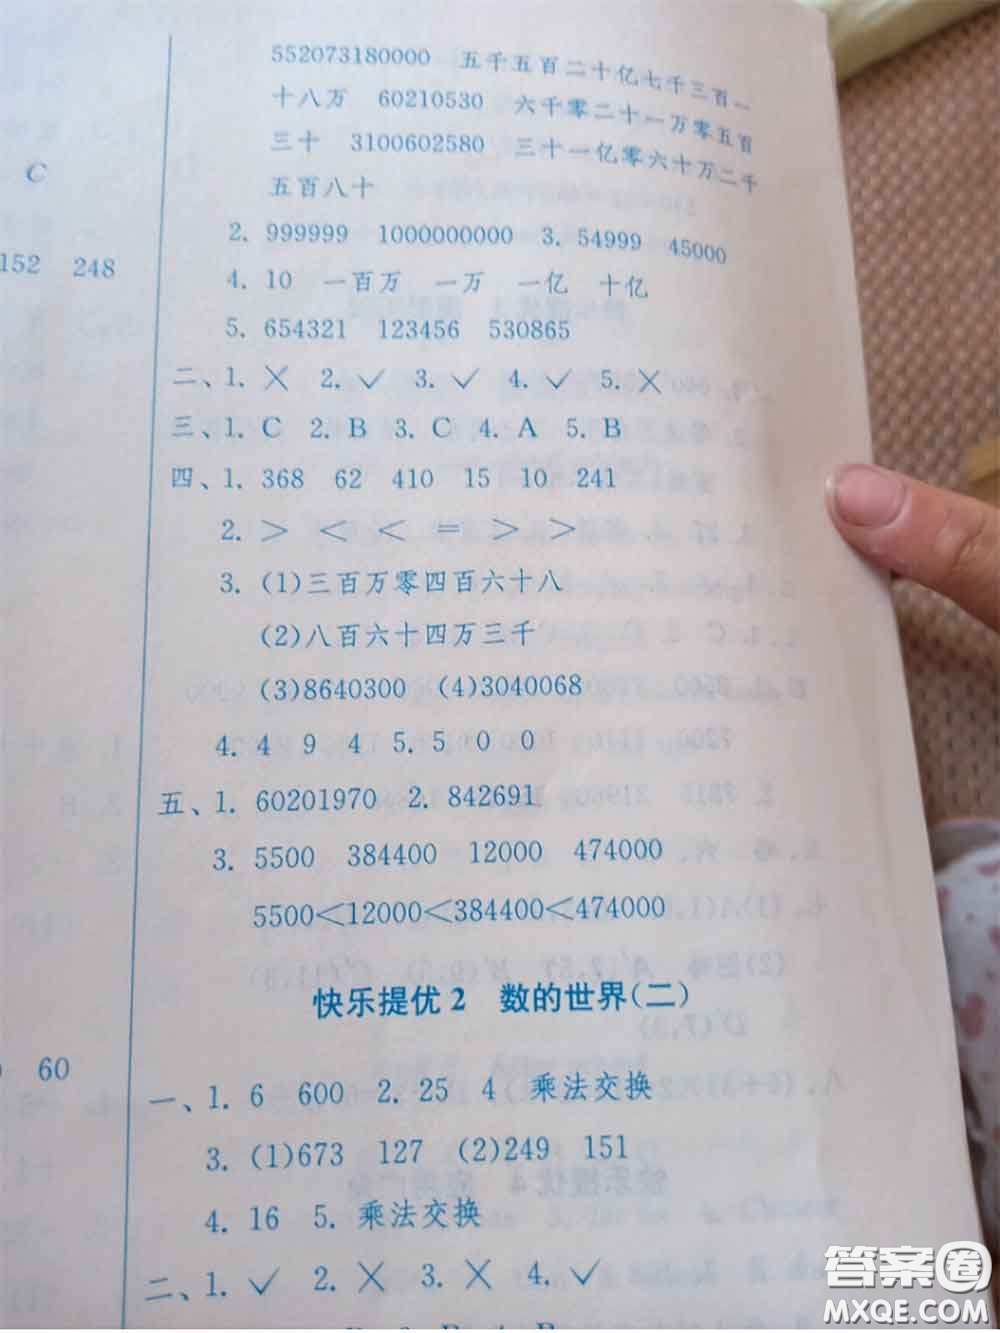 C
152 248
60
552073180000 五千五百二十亿七千三百一
十八万 60210530 六千零二十一万零五百
三十 3100602580 三十一亿零六十万二千
五百八十
2. 999999 1000000000 3. 54999 45000
4. 10 一百万 一万 一亿 十亿
5. 654321 123456 530865
二、1. ╳ 2. ✓ 3. ✓ 4. ✓ 5. ╳
三、1. C 2. B 3. C 4. A 5. B
四、1. 368 62 410 15 10 241
2. > < < = > >
3. (1)三百万零四百六十八
(2)八百六十四万三千
(3)8640300 (4)3040068
4. 4 9 4 5. 5 0 0
五、1. 60201970 2. 842691
3. 5500 384400 12000 474000
5500<12000<384400<474000
快乐提优2 数的世界(二)
一、1. 6 600 2. 25 4 乘法交换
3. (1)673 127 (2)249 151
4. 16 5. 乘法交换
二、1. ✓ 2. ╳ 3. ╳ 4. ✓
答案圈
MXQE.COM